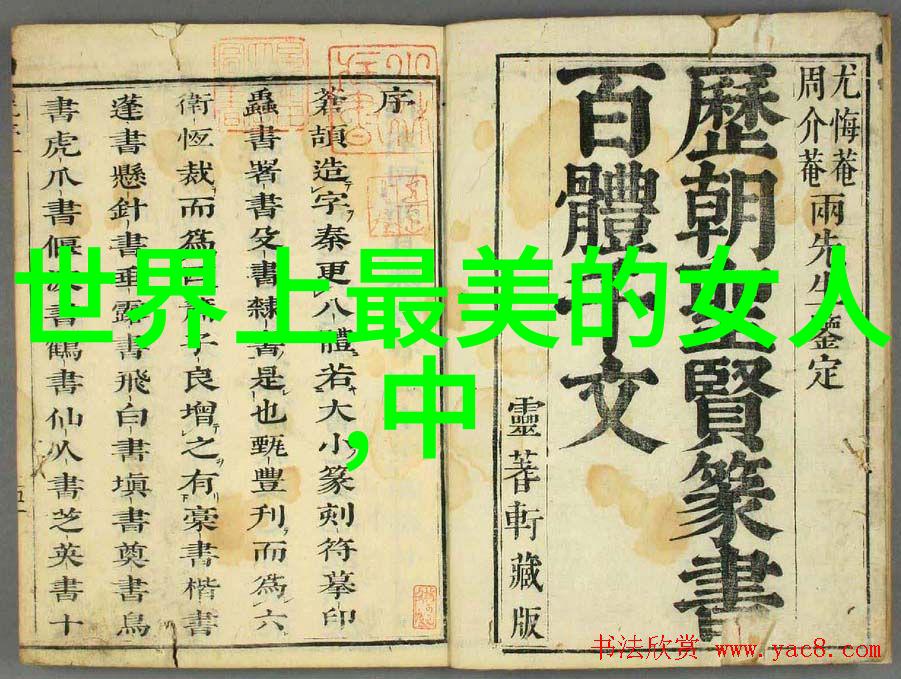 世界上最美的女人
,中
尤悔菴
周介菴
兩先生鑒定
歷朝聖賢篆書
百體千文
靈蓍軒藏版
序
蒼頡造字秦更八體若大小篆刻符摹印
蟲書署書殳書隸書是也甄豐刋而為六
衛恆裁而為子良增之有藁書楷書
蓬書懸針書垂露書飛白書塡書奠書鳥
書虎爪書偃波書鶴書仙人書芝英書十
书法欣赏 www.yac8.com